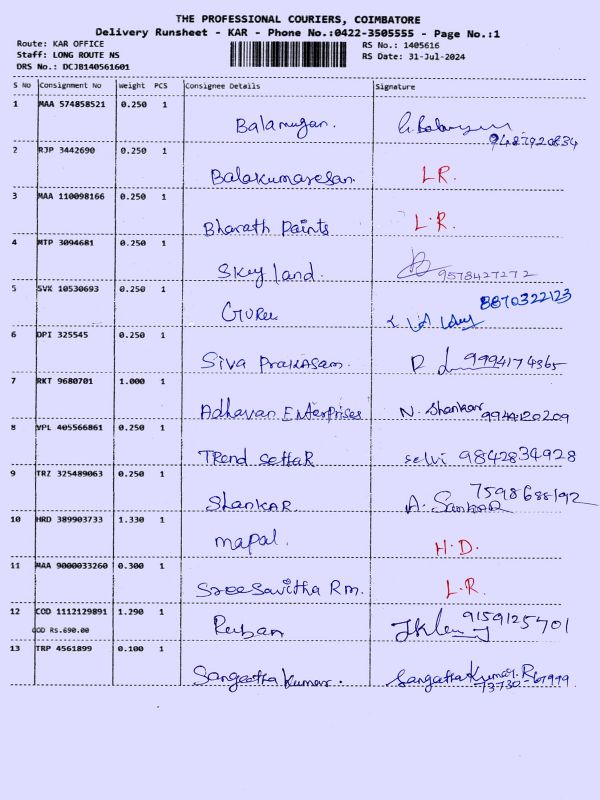 THE PROFESSIONAL COURIERS, COIMBATORE
Delivery Runsheet - KAR - Phone No.:0422-3505555 - Page No.:1
Route: KAR OFFICE RS No.: 1405616
Staff: LONG ROUTE NS RS Date: 31-Jul-2024
DRS No.: DCJB140561601
S No Consignment No Weight PCS Consignee Details Signature
1 MAA 574858521 0.250 1
Balamugan.
2 RJP 3442690 0.250 1
Balakumaresan. L.R.
3 MAA 110098166 0.250 1
Bharath Paints L.R.
4 MTP 3094681 0.250 1
Skey land. 9578427272
5 SVK 10530693 0.250 1 8870322123
Guru
6 DPI 325545 0.250 1
Siva Prakasam. 9994174365
7 RKT 9680701 1.000 1
Adhavan Enterprises N. Shankar 9944120209
8 VPL 405566861 0.250 1
Trend settar selvi 9842834928
9 TRZ 325489063 0.250 1
Shankar A. Sankar
10 HRD 389903733 1.330 1
mapal. H.D.
11 MAA 9000033260 0.300 1
Sreesavitha Rm. L.R.
12 COD 1112129891 1.290 1
COD Rs.690.00
Ruban 9159125701
13 TRP 4561899 0.100 1
Sangeetha Kumar. Sangatha Kumar. R
73730-67999